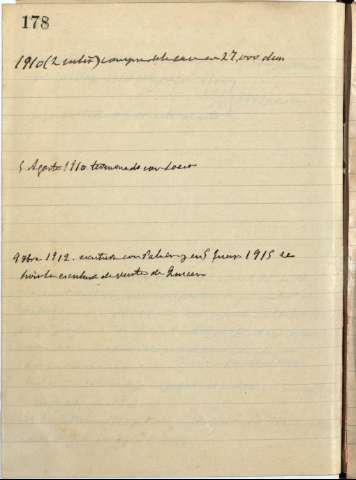 178
1910 (2 julio) compra de la casa en 27,000 duros
5 Agosto 1910 terminado con
9 1912. escritura con y en 5 1915 se
hizo la escritura de venta de